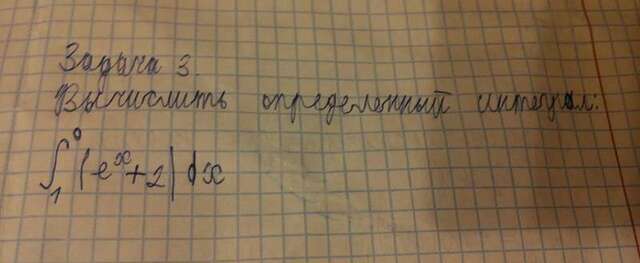 Задача 3.
Вычислить определенный интеграл:
∫₁⁰ (eˣ+2) dx